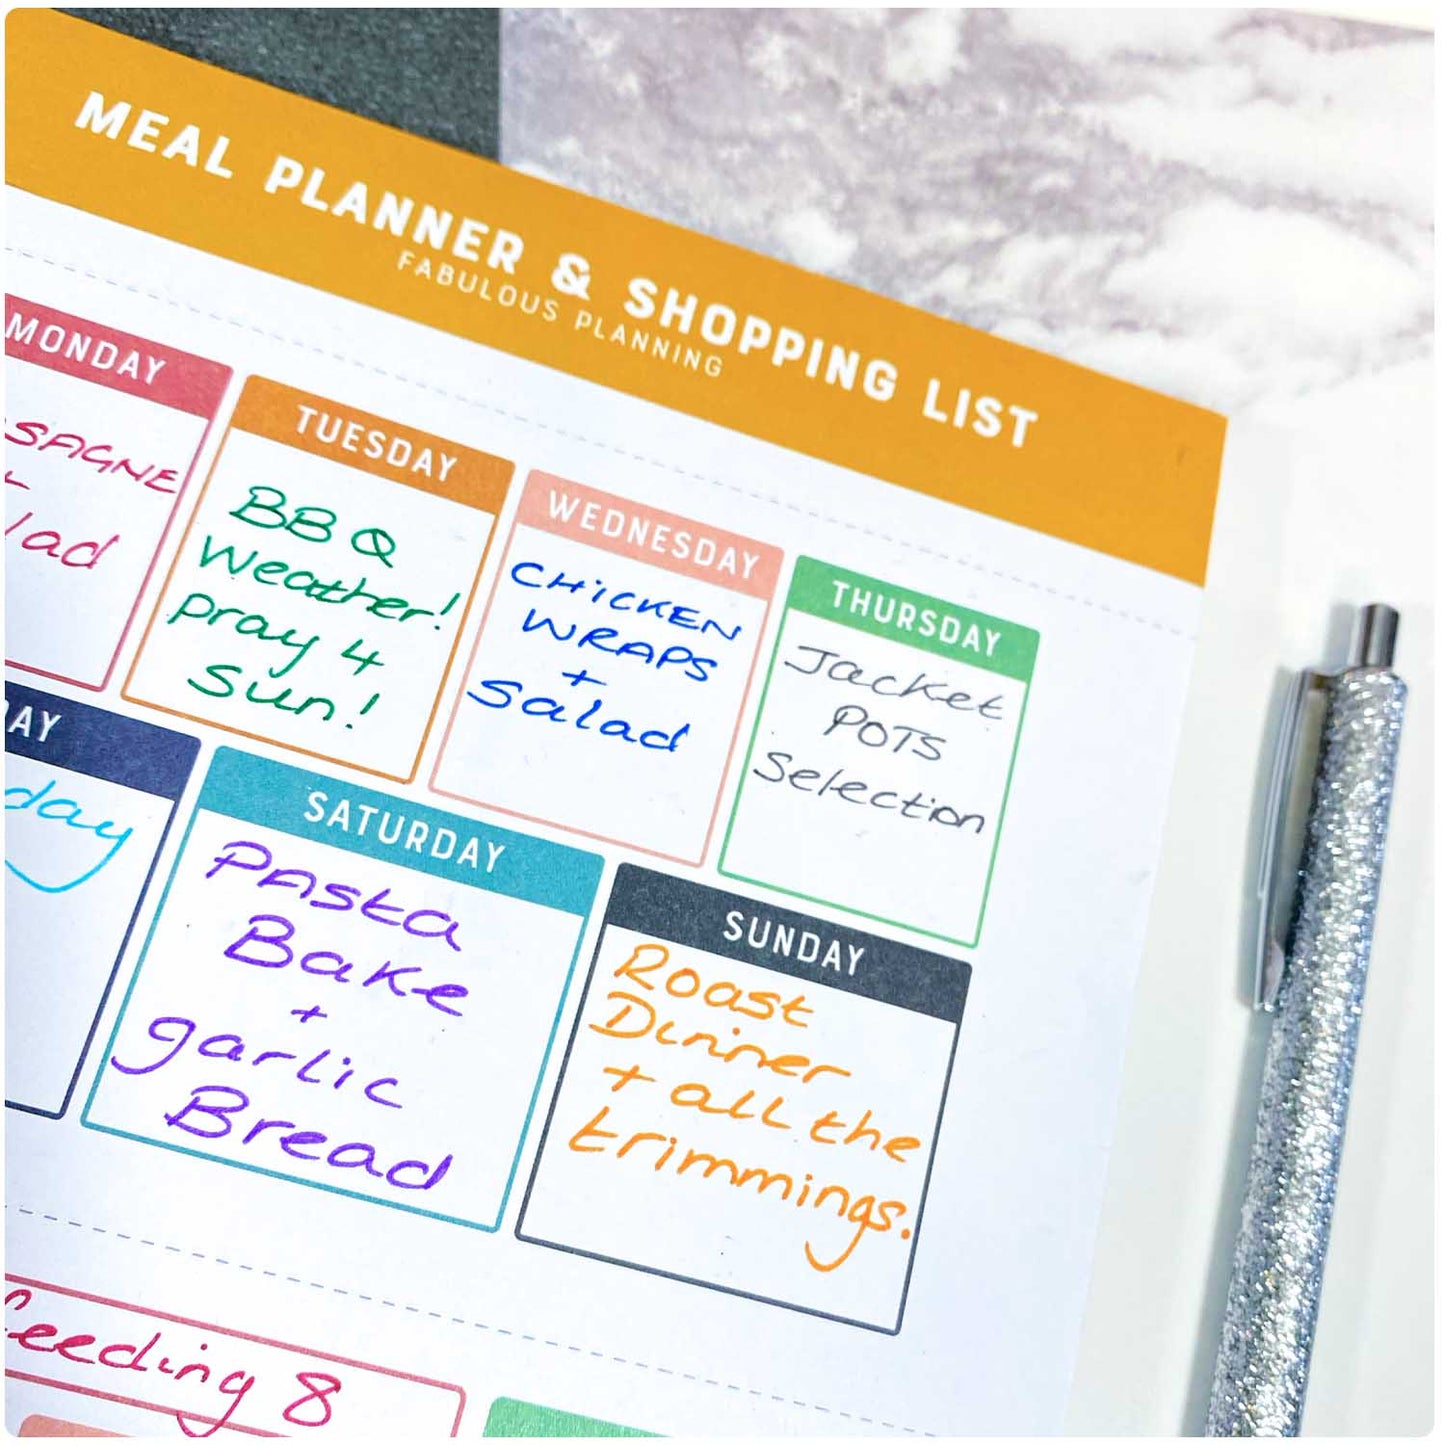 MEAL PLANNER & SHOPPING LIST
FABULOUS PLANNING
MONDAY
SAGNE
+
lad
TUESDAY
BBQ
Weather!
pray 4
sun!
WEDNESDAY
CHICKEN
WRAPS
+
Salad
THURSDAY
Jacket
POTS
Selection
AY
day
SATURDAY
Pasta
Bake
+
garlic
Bread
SUNDAY
Roast
Dinner
+ all the
trimmings.
feeding 8